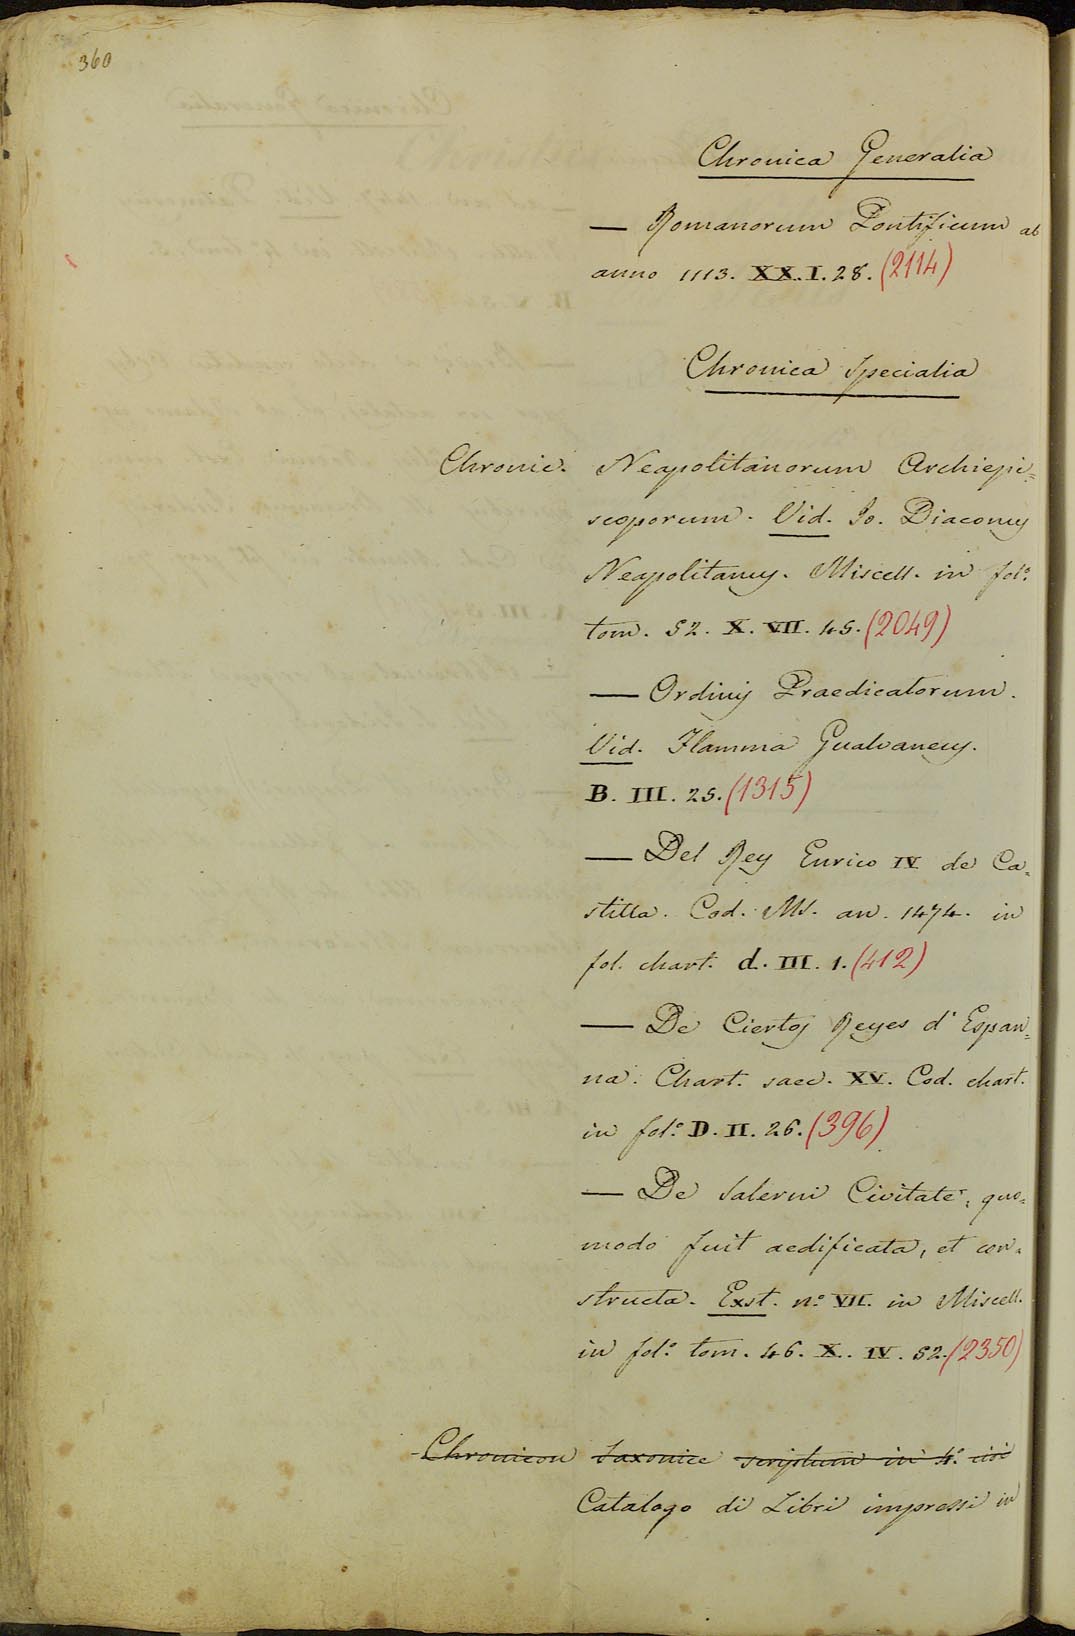 360
Chronica Generalia
— Romanorum Pontificum ab
anno 1113. XX. I. 28. (2114)
Chronica Specialia
Chronic. Neapolitanorum Archiepi=
scoporum. Vid. Jo. Diaconus
Neapolitanus. Miscell. in fol.º
tom. 52. X. VII. 45. (2049)
— Ordinis Praedicatorum.
Vid. Flamma Gualvaneus.
B. III. 25. (1315)
— Del Rey Enrico IV de Ca=
stilla. Cod. Ms. an. 1474. in
fol. chart. d. III. 1. (412)
— De Ciertos Reyes d' Espan=
na. Chart. saec. XV. Cod. chart.
in fol.º D. II. 26. (396)
— De Salerni Civitate, quo=
modo fuit aedificata, et con=
structa. Exst. n.º VII. in Miscell.
in fol.º tom. 46. X. IV. 52. (2350)
Chronicon Saxonice scriptum in 4.º
Catalogo di Libri impressi in